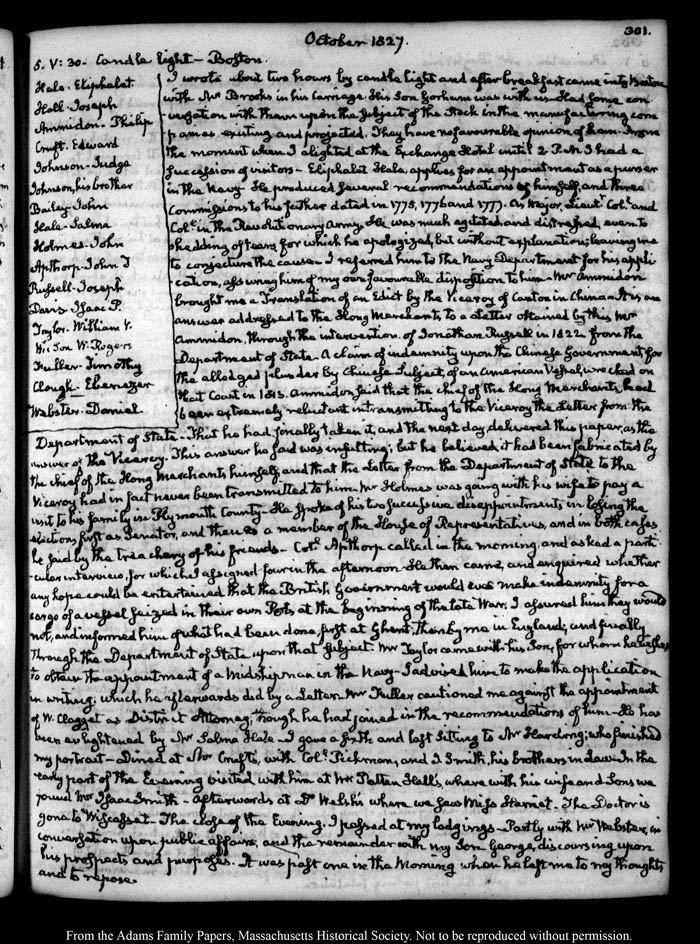 301.
October 1827.
5. V: 30. Candle light - Boston.
Hale. Eliphalet
Hall. Joseph
Ammidon - Philip
Cruft. Edward
Johnson - Judge
Johnson, his brother
Bailey. John
Hale - Salma
Holmes. John
Apthorp. John T
Russell. Joseph
Davis. Isaac P.
Taylor. William V.
His Son W. Rogers
Fuller. Timothy
Clough. Ebenezer
Webster. Daniel
I wrote about two hours by candle light and after breakfast came into Boston
with Mr Brooks in his Carriage. His Son Gorham was with us. Had some con-
versation with them upon the subject of the Stock in the manufacturing com-
panies existing and projected. They have no favourable opinion of them. From
the moment when I alighted at the Exchange Hotel until 2 P.M. I had a
succession of visitors - Eliphalet Hale, applies for an appointment as a purser
in the Navy - He produced several recommendations of himself, and three
Commissions to his father dated in 1775, 1776 and 1777. as Major, Lieut. Col. and
Col. in the Revolutionary Army. He was much agitated and distressed, even to
shedding of tears, for which he apologized, but without explanation; leaving me
to conjecture the cause. I referred him to the Navy Department for his appli-
cation, assuring him of my own favourable disposition to him - Mr Ammidon
brought me a Translation of an Edict by the Viceroy of Canton in China - It is an
answer addressed to the Hong Merchants, to a Letter obtained by this Mr
Ammidon, through the intervention of Jonathan Russell in 1822 from the
Department of State. A claim of indemnity upon the Chinese Government for
the alledged plunder by Chinese Subjects, of an American Vessel, wrecked on
that Coast in 1813. Ammidon said that the chief of the Hong Merchants, had
been extremely reluctant in transmitting to the Viceroy the Letter from the
Department of State - That he had finally taken it, and the next day delivered this paper, as the
answer of the Viceroy. This answer he said was insulting; but he believed it had been fabricated by
the chief of the Hong Merchants himself, and that the Letter from the Department of State to the
Viceroy had in fact never been transmitted to him. Mr Holmes was going with his wife to pay a
visit to his family in Plymouth County - He spoke of his two successive disappointments in losing the
elections, first as Senator, and then as a member of the House of Representatives, and in both cases
he said by the treachery of his friends - Col. Apthorp called in the morning, and asked a parti-
cular interview, for which I assigned four in the afternoon - He then came, and enquired whether
any hope could be entertained that the British Government would ever make indemnity for a
cargo of a vessel seized in their own Ports at the beginning of the late War. I assured him they would
not, and informed him of what had been done, first at Ghent. Then by me in England; and finally
through the Department of State upon that subject. Mr Taylor came with his Son, for whom he wishes
to obtain the appointment of a Midshipman in the Navy - I advised him to make the application
in writing; which he afterwards did by a Letter. Mr Fuller cautioned me against the appointment
of W. Clagget as District Attorney, though he had joined in the recommendations of him - He has
been enlightened by Mr Salma Hale - I gave a sixth and last sitting to Mr Harding; who finished
my portrait - Dined at Mr Cruft's, with Col. Pickman, and I. Smith, his brothers in Law. In the
early part of the Evening visited with him at Mr Patten Hall's, where with his wife and Sons we
found Mr Isaac Smith - Afterwards at Dr Welsh's where we saw Miss Harriet. The Doctor is
gone to Wiscasset. The close of the Evening. I passed at my lodgings - Partly with Mr Webster, in
conversation upon public affairs, and the remainder with my Son George, discoursing upon
his prospects and purposes. It was past one in the Morning when he left me to my thoughts
and to repose.
From the Adams Family Papers, Massachusetts Historical Society. Not to be reproduced without permission.